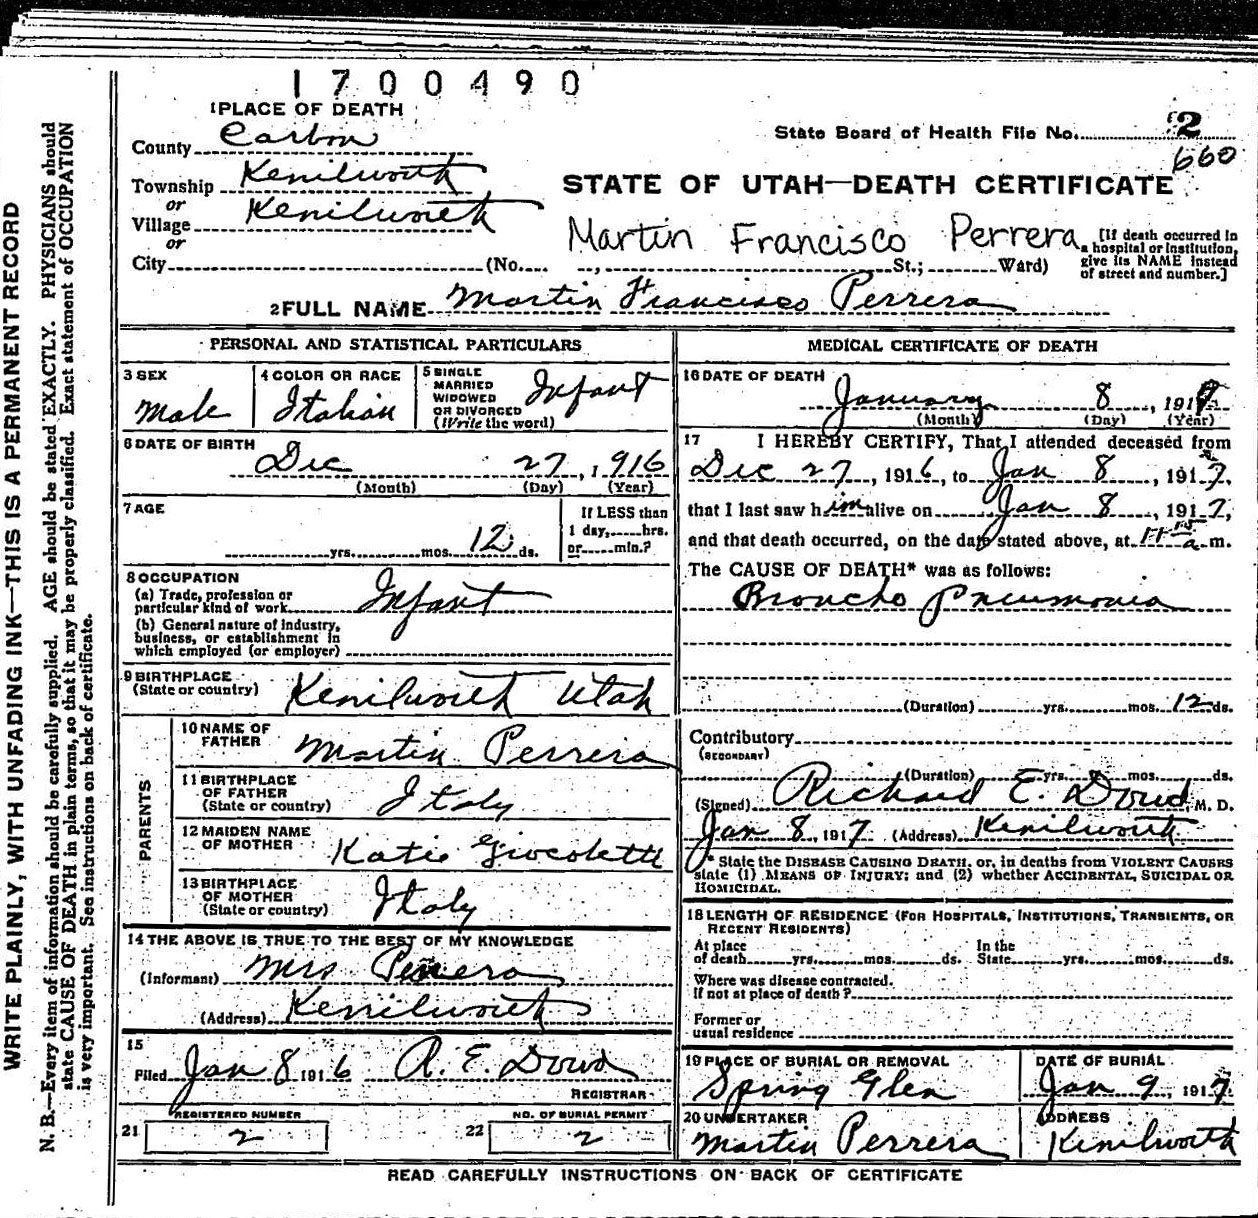 1700490
1 PLACE OF DEATH
County Carbon
State Board of Health File No. 2
660
Township Kenilworth
or
Village Kenilworth
or
STATE OF UTAH—DEATH CERTIFICATE
Martin Francisco Perrera
City (No. , St.; Ward)
[If death occurred in a hospital or institution, give its NAME instead of street and number.]
2 FULL NAME Martin Francisco Perrera
PERSONAL AND STATISTICAL PARTICULARS
3 SEX
Male
4 COLOR OR RACE
Italian
5 SINGLE
MARRIED
WIDOWED
OR DIVORCED
(Write the word)
Infant
6 DATE OF BIRTH
Dec 27, 1916
(Month) (Day) (Year)
7 AGE
yrs. mos. 12 ds.
If LESS than
1 day, hrs.
or min.?
8 OCCUPATION
(a) Trade, profession or
particular kind of work Infant
(b) General nature of industry,
business, or establishment in
which employed (or employer)
9 BIRTHPLACE
(State or country) Kenilworth Utah
PARENTS
10 NAME OF
FATHER Martin Perrera
11 BIRTHPLACE
OF FATHER
(State or country) Italy
12 MAIDEN NAME
OF MOTHER Katie Giocoletti
13 BIRTHPLACE
OF MOTHER
(State or country) Italy
14 THE ABOVE IS TRUE TO THE BEST OF MY KNOWLEDGE
(Informant) Mrs Perrera
(Address) Kenilworth
15
Filed Jan 8 1916 R. E. Dowd
REGISTRAR
REGISTERED NUMBER
21 2
NO. OF BURIAL PERMIT
22 2
MEDICAL CERTIFICATE OF DEATH
16 DATE OF DEATH
January 8, 1917
(Month) (Day) (Year)
17 I HEREBY CERTIFY, That I attended deceased from
Dec 27, 1916, to Jan 8, 1917,
that I last saw him alive on Jan 8, 1917,
and that death occurred, on the date stated above, at a m.
The CAUSE OF DEATH* was as follows:
Broncho Pneumonia
(Duration) yrs. mos. 12 ds.
Contributory
(SECONDARY)
(Duration) yrs. mos. ds.
(Signed) Richard E. Dowd, M. D.
Jan 8, 1917 (Address) Kenilworth
* State the DISEASE CAUSING DEATH, or, in deaths from VIOLENT CAUSES
state (1) MEANS OF INJURY; and (2) whether ACCIDENTAL, SUICIDAL OR
HOMICIDAL.
18 LENGTH OF RESIDENCE (FOR HOSPITALS, INSTITUTIONS, TRANSIENTS, OR
RECENT RESIDENTS)
At place
of death yrs. mos. ds.
In the
State yrs. mos. ds.
Where was disease contracted.
if not at place of death?
Former or
usual residence
19 PLACE OF BURIAL OR REMOVAL
Spring Glen
DATE OF BURIAL
Jan 9, 1917
20 UNDERTAKER
Martin Perrera
ADDRESS
Kenilworth
READ CAREFULLY INSTRUCTIONS ON BACK OF CERTIFICATE
WRITE PLAINLY, WITH UNFADING INK—THIS IS A PERMANENT RECORD
N. B.—Every item of information should be carefully supplied. AGE should be stated EXACTLY. PHYSICIANS should
state CAUSE OF DEATH in plain terms, so that it may be properly classified. Exact statement of OCCUPATION
is very important. See instructions on back of certificate.